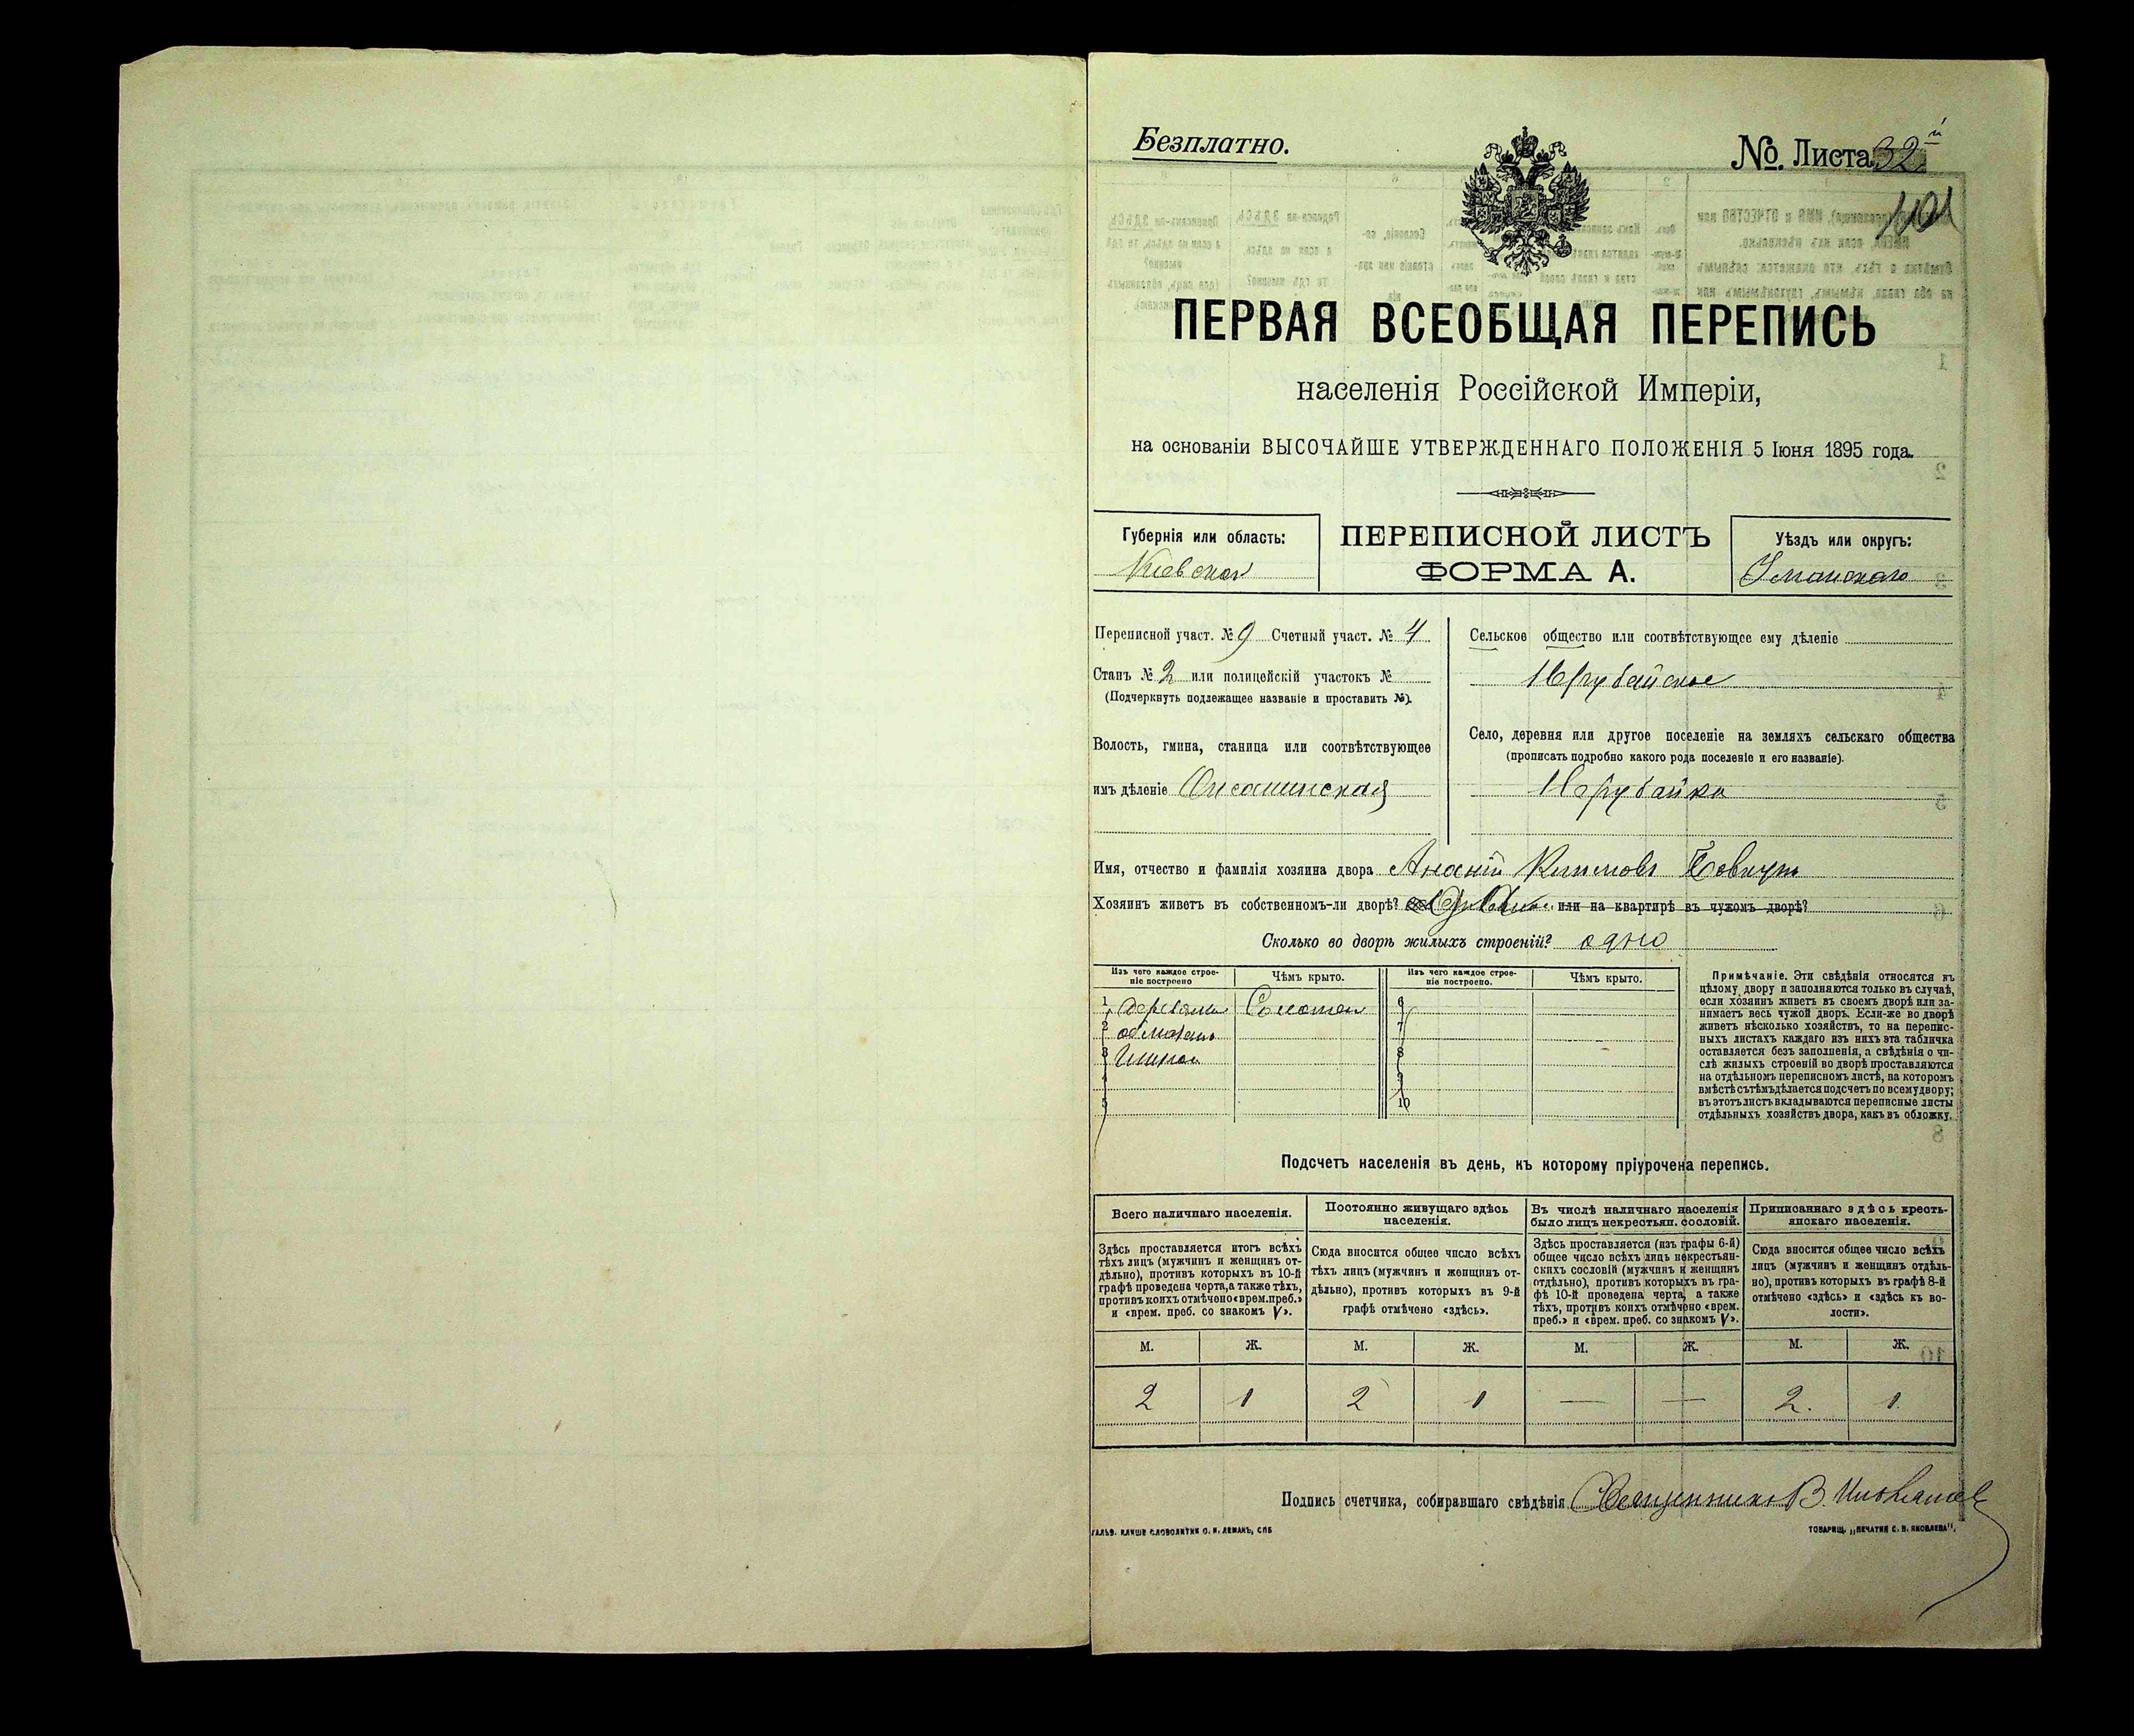 Безплатно.
№. Листа 32й
101
ПЕРВАЯ ВСЕОБЩАЯ ПЕРЕПИСЬ
населенія Россійской Имперіи,
на основаніи ВЫСОЧАЙШЕ УТВЕРЖДЕННАГО ПОЛОЖЕНІЯ 5 Іюня 1895 года.
Губернія или область:
Киевская
ПЕРЕПИСНОЙ ЛИСТЪ
ФОРМА А.
Уѣздъ или округъ:
Уманскаго
Переписной участ. № 9 Счетный участ. № 4
Станъ № 2 или полицейскій участокъ №
(Подчеркнуть подлежащее названіе и проставить №).
Волость, гмина, станица или соотвѣтствующее
имъ дѣленіе Оксанинская
Сельское общество или соотвѣтствующее ему дѣленіе
Нерубайское
Село, деревня или другое поселеніе на земляхъ сельскаго общества
(прописать подробно какого рода поселеніе и его названіе).
Нерубайка
Имя, отчество и фамилія хозяина двора Ананій
Хозяинъ живетъ въ собственномъ-ли дворѣ? или на квартирѣ въ чужомъ дворѣ?
Сколько во дворѣ жилыхъ строеній? одно
Изъ чего каждое строе-
ніе построено
Чѣмъ крыто.
Изъ чего каждое строе-
ніе построено.
Чѣмъ крыто.
1 Соломою 6
2 обмазано 7
3 глиною 8
4 9
5 10
Примѣчаніе. Эти свѣдѣнія относятся къ
цѣлому двору и заполняются только въ случаѣ,
если хозяинъ живетъ въ своемъ дворѣ или за-
нимаетъ весь чужой дворъ. Если-же во дворѣ
живетъ нѣсколько хозяйствъ, то на перепис-
ныхъ листахъ каждаго изъ нихъ эта табличка
оставляется безъ заполненія, а свѣдѣнія о чи-
слѣ жилыхъ строеній во дворѣ проставляются
на отдѣльномъ переписномъ листѣ, на которомъ
вмѣстѣ съ тѣмъ дѣлается подсчетъ по всему двору;
въ этотъ листъ вкладываются переписные листы
отдѣльныхъ хозяйствъ двора, какъ въ обложку.
Подсчетъ населенія въ день, къ которому пріурочена перепись.
Всего наличнаго населенія.
Постоянно живущаго здѣсь
населенія.
Въ числѣ наличнаго населенія
было лицъ некрестьян. сословій.
Приписаннаго здѣсь кресть-
янскаго населенія.
Здѣсь проставляется итогъ всѣхъ
тѣхъ лицъ (мужчинъ и женщинъ от-
дѣльно), противъ которыхъ въ 10-й
графѣ проведена черта, а также тѣхъ,
противъ коихъ отмѣчено «врем. преб.»
и «врем. преб. со знакомъ V».
Сюда вносится общее число всѣхъ
тѣхъ лицъ (мужчинъ и женщинъ от-
дѣльно), противъ которыхъ въ 9-й
графѣ отмѣчено «здѣсь».
Здѣсь проставляется (изъ графы 6-й)
общее число всѣхъ лицъ некрестьян-
скихъ сословій (мужчинъ и женщинъ
отдѣльно), противъ которыхъ въ гра-
фѣ 10-й проведена черта, а также
тѣхъ, противъ коихъ отмѣчено «врем.
преб.» и «врем. преб. со знакомъ V».
Сюда вносится общее число всѣхъ
лицъ (мужчинъ и женщинъ отдѣль-
но), противъ которыхъ въ графѣ 8-й
отмѣчено «здѣсь» и «здѣсь къ во-
лости».
М. Ж. М. Ж. М. Ж. М. Ж.
2 1 2 1 — — 2. 1.
Подпись счетчика, собиравшаго свѣдѣнія Священникъ В.
ГАЛЬВ. КЛИШЕ СЛОВОЛИТНИ О. И. ЛЕМАНЪ, СПБ
ТОВАРИЩ. „ПЕЧАТНЯ С. П. ЯКОВЛЕВА".